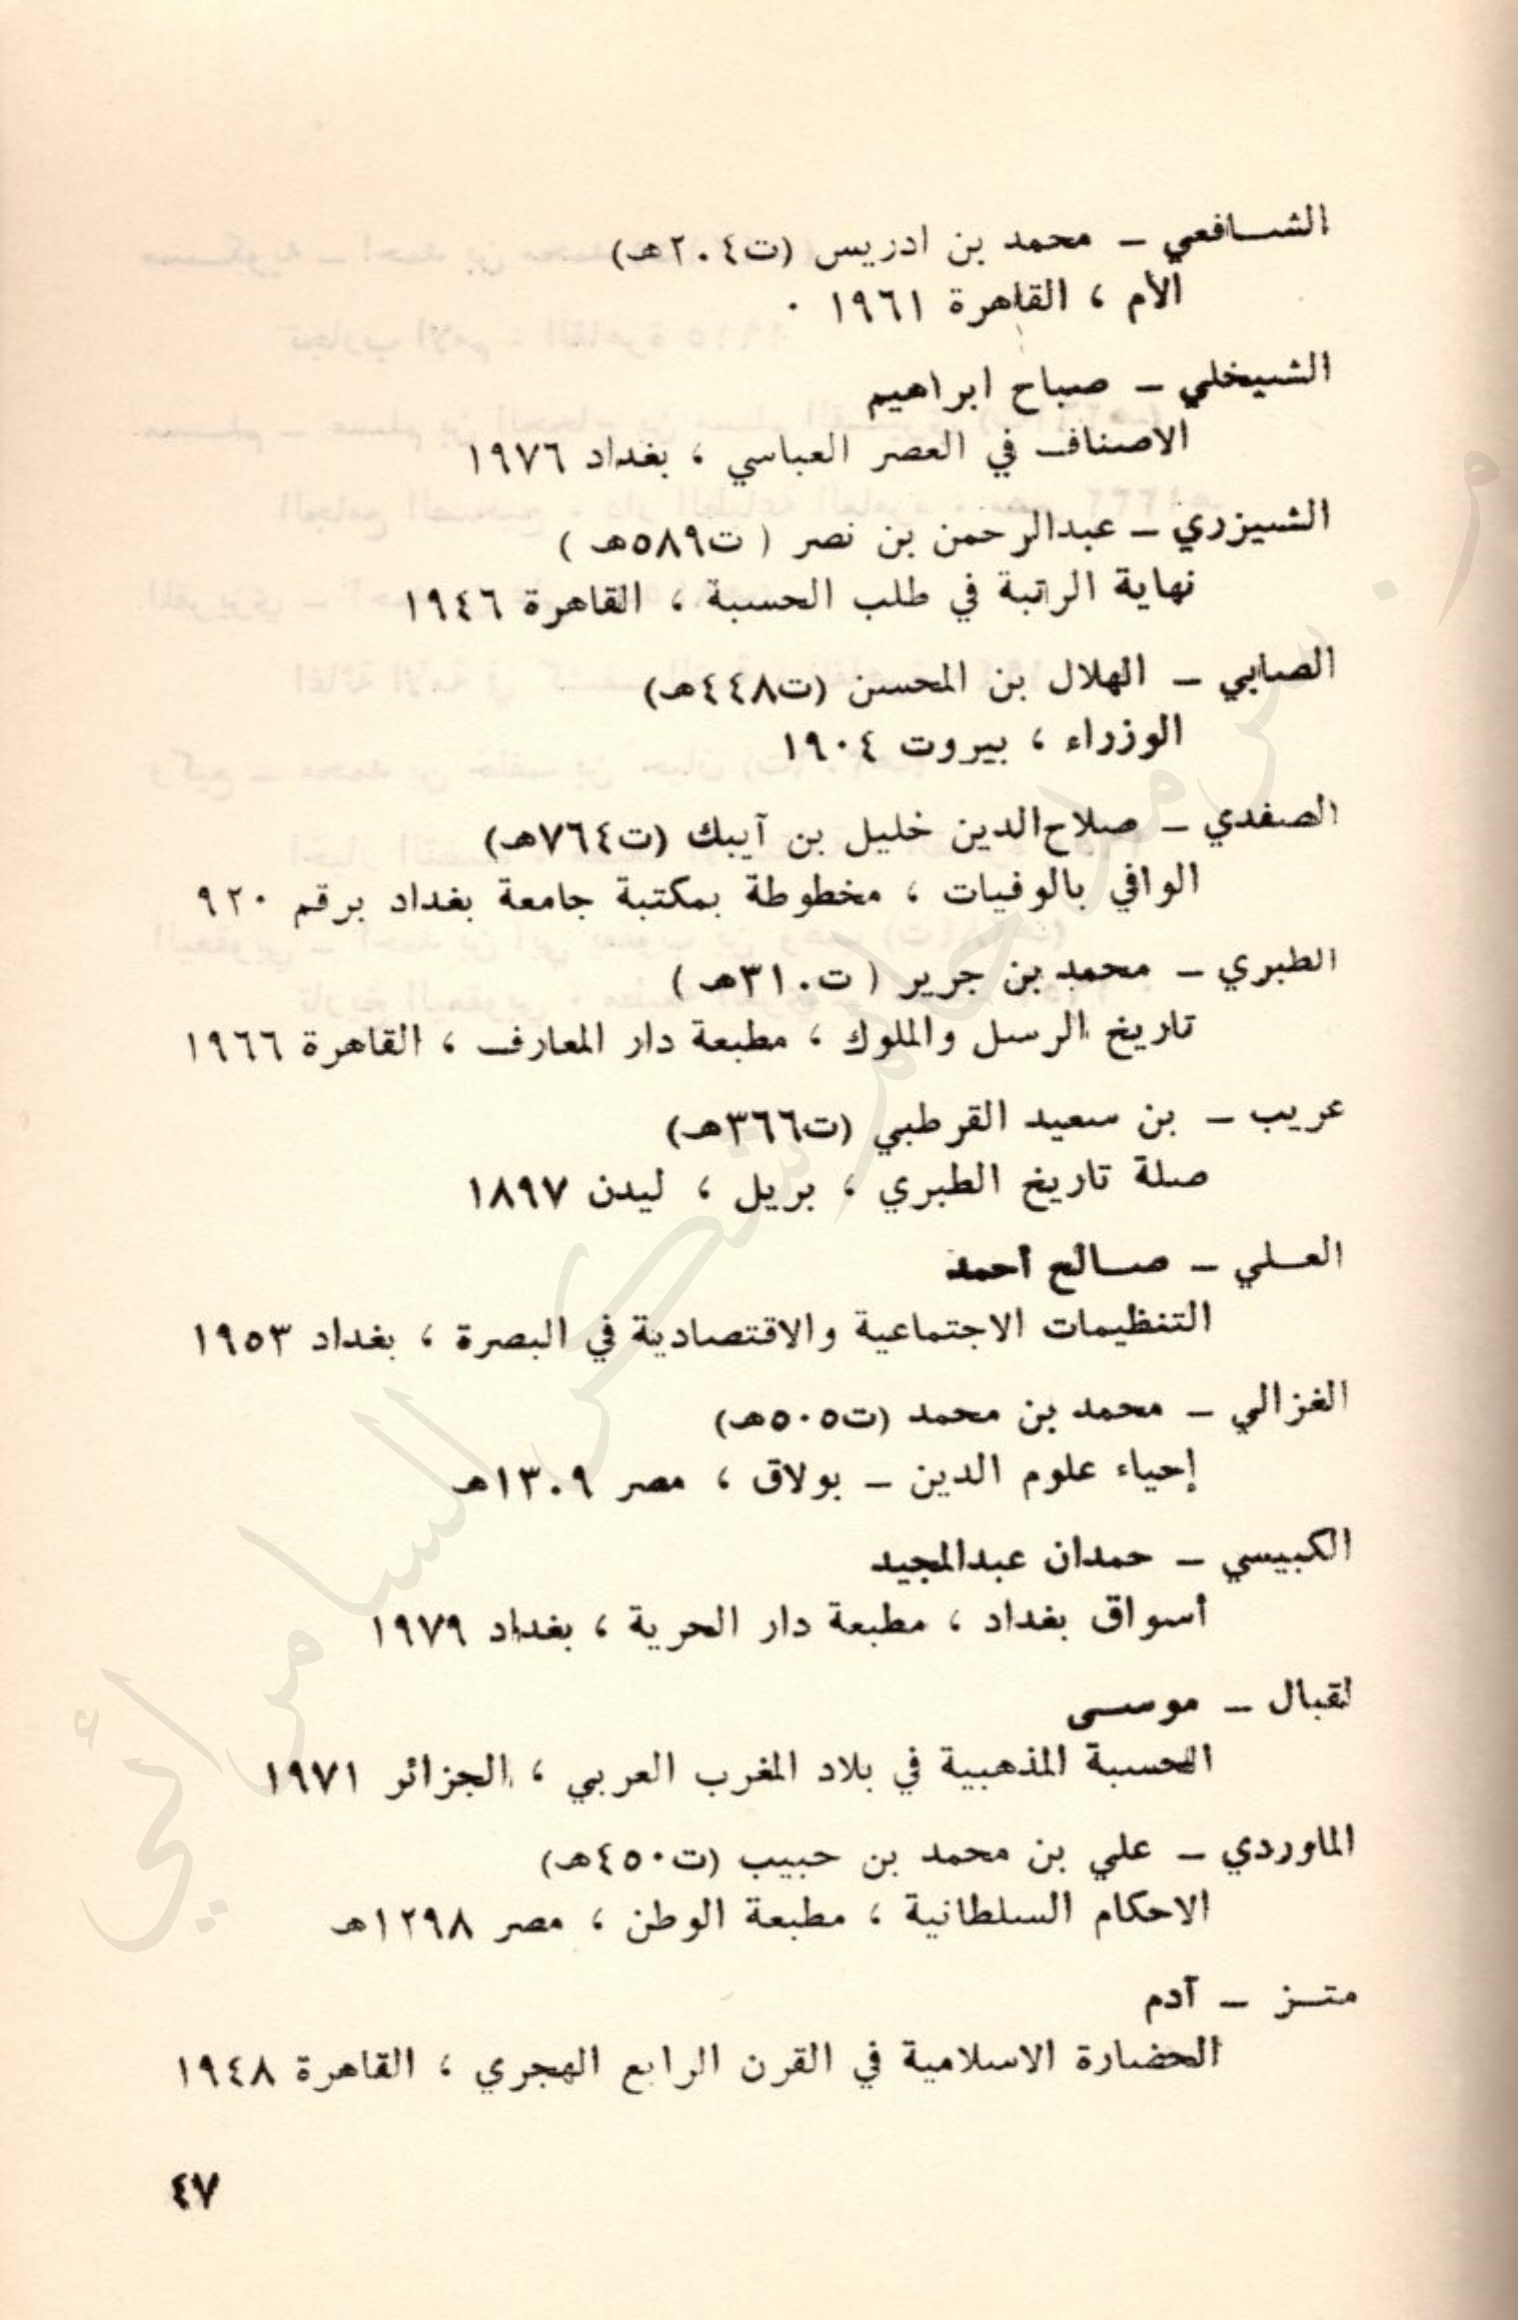 الشافعي – محمد بن ادريس (ت٢٠٤هـ)
الأم ، القاهرة ١٩٦١ ٠
الشيخلي – صباح ابراهيم
الاصناف في العصر العباسي ، بغداد ١٩٧٦
الشيزري – عبدالرحمن بن نصر ( ت٥٨٩هـ )
نهاية الرتبة في طلب الحسبة ، القاهرة ١٩٤٦
الصابي – الهلال بن المحسن (ت٤٤٨هـ)
الوزراء ، بيروت ١٩٠٤
الصفدي – صلاح‌الدين خليل بن آيبك (ت٧٦٤هـ)
الوافي بالوفيات ، مخطوطة بمكتبة جامعة بغداد برقم ٩٢٠
الطبري – محمد بن جرير ( ت٣١٠هـ )
تاريخ الرسل والملوك ، مطبعة دار المعارف ، القاهرة ١٩٦٦
عريب – بن سعيد القرطبي (ت٣٦٦هـ)
صلة تاريخ الطبري ، بريل ، ليدن ١٨٩٧
العلي – صالح أحمد
التنظيمات الاجتماعية والاقتصادية في البصرة ، بغداد ١٩٥٣
الغزالي – محمد بن محمد (ت٥٠٥هـ)
إحياء علوم الدين – بولاق ، مصر ١٣٠٩هـ
الكبيسي – حمدان عبدالمجيد
أسواق بغداد ، مطبعة دار الحرية ، بغداد ١٩٧٩
لقبال – موسى
الحسبة المذهبية في بلاد المغرب العربي ، الجزائر ١٩٧١
الماوردي – علي بن محمد بن حبيب (ت٤٥٠هـ)
الاحكام السلطانية ، مطبعة الوطن ، مصر ١٢٩٨هـ
متز – آدم
الحضارة الاسلامية في القرن الرابع الهجري ، القاهرة ١٩٤٨
٤٧